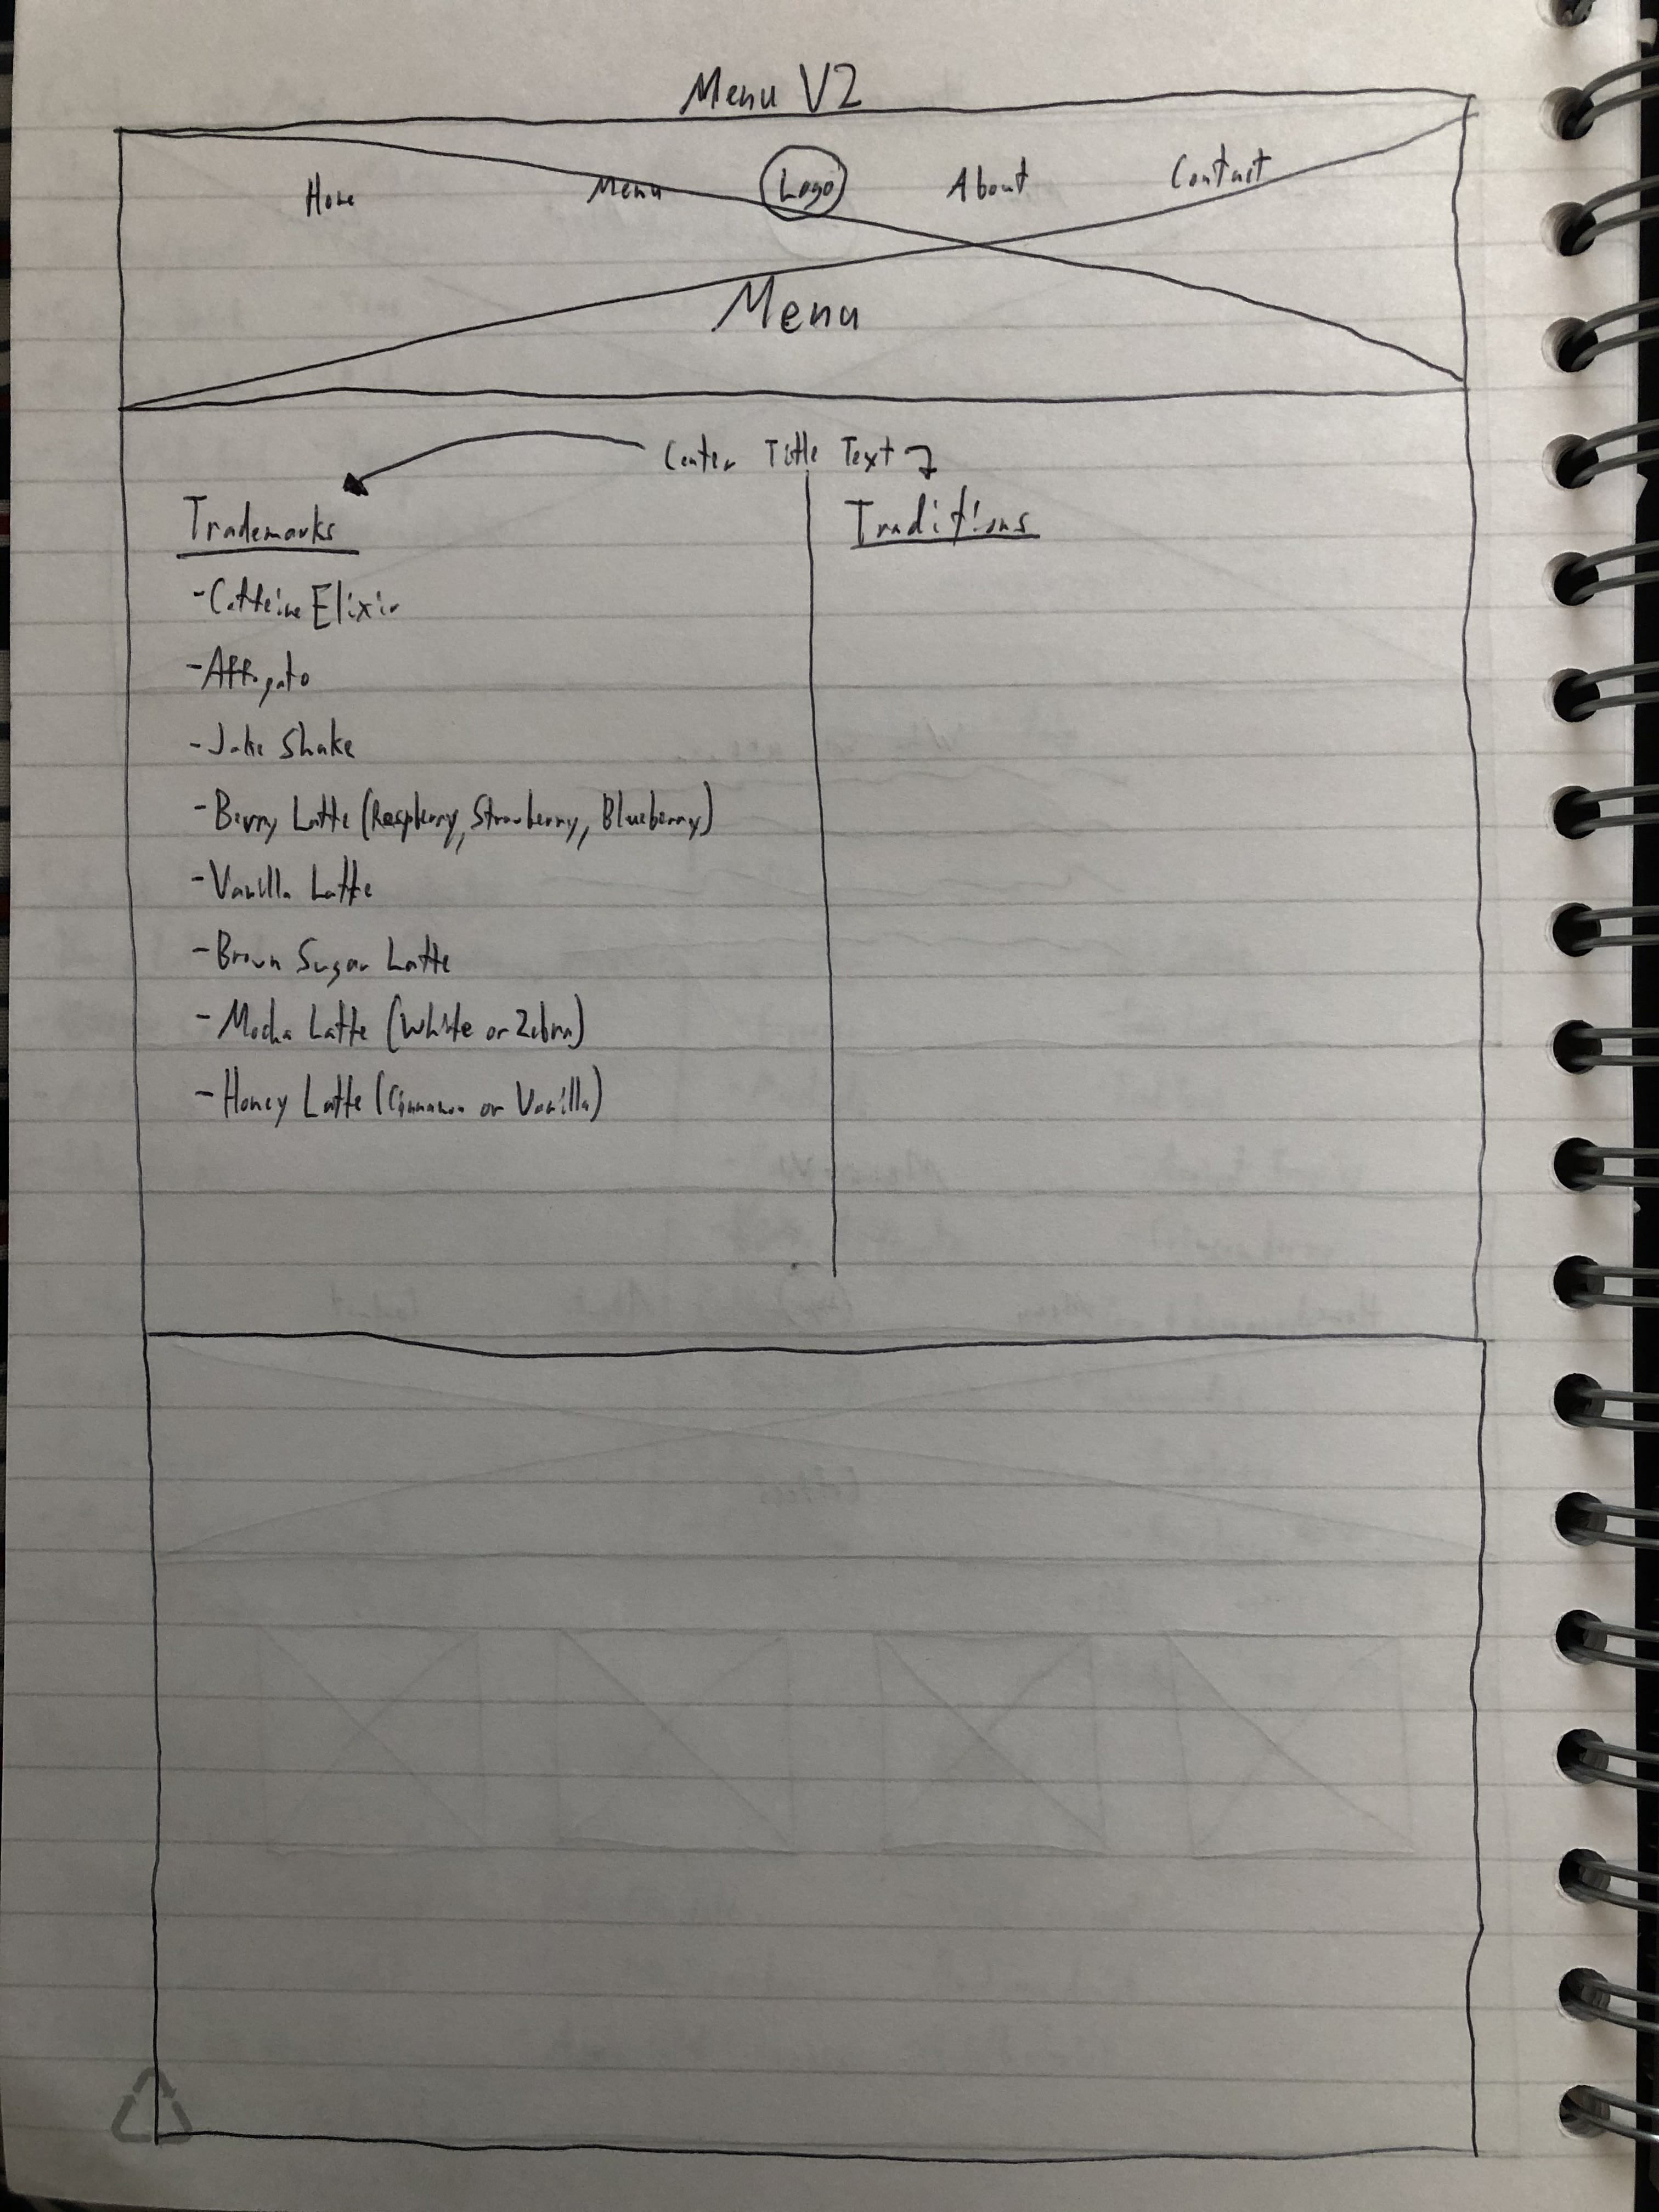 Menu V2
Home Menu Logo About Contact
Menu
Center Title Text
Trademarks
Traditions
-Caffeine Elixir
-Affogato
-Jake Shake
-Berry Latte (Raspberry, Strawberry, Blueberry)
-Vanilla Latte
-Brown Sugar Latte
-Mocha Latte (White or Zebra)
-Honey Latte (Cinnamon or Vanilla)